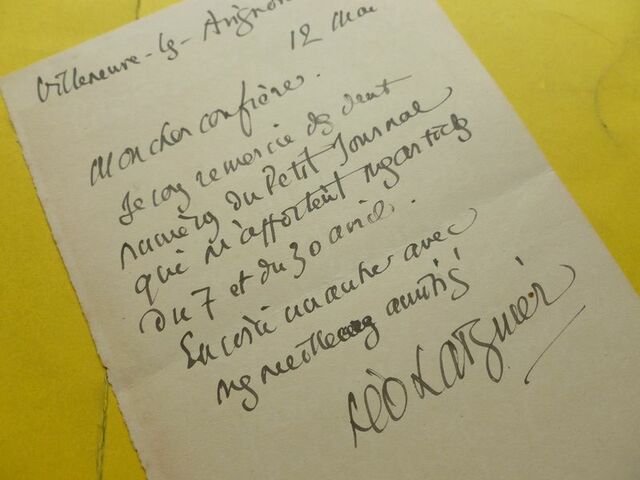 Villeneuve-lès-Avignon
12 Mai
Mon cher confrère.
Je vous remercie des deux
numéros du Petit Journal
qui m'apportent mes articles
du 7 et du 30 avril.
En voici un autre avec
mes meilleures amitiés
Léo Larguier